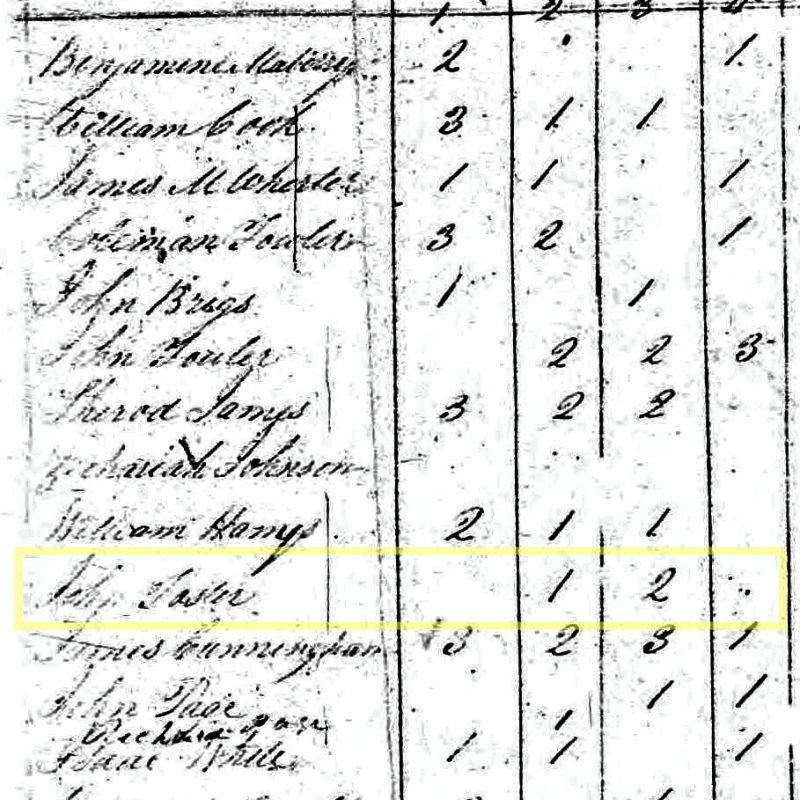 1 2 3 4
Benjamine 2 1
William Cook 3 1 1
James 1 1 1
Coleman Fowler 3 2 1
John Brigs 1 1
John Fowler 2 2 3
Sherod James 3 2 2
Zechariah Johnson
William Hamys 2 1 1
John Foster 1 2
James Cunningham 3 2 3 1
John Page 1 1
Richard 1
Isaac White 1 1 1